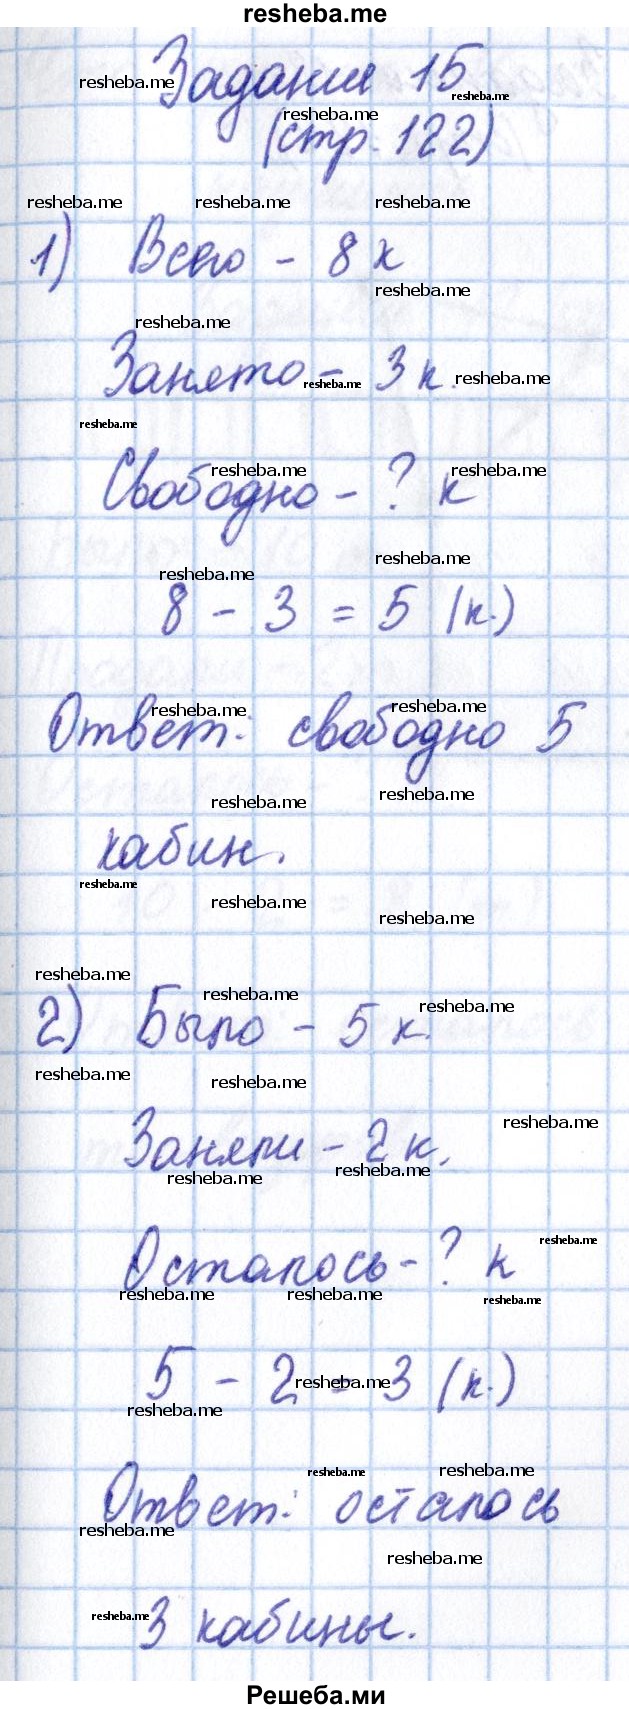 resheba.me
Задание 15
(стр. 122)
1) Всего - 8 к
Занято - 3 к.
Свободно - ? к
8 - 3 = 5 (к.)
Ответ: свободно 5
кабин.
2) Было - 5 к.
Заняли - 2 к.
Осталось - ? к
5 - 2 = 3 (к.)
Ответ: осталось
3 кабины.
Решеба.ми